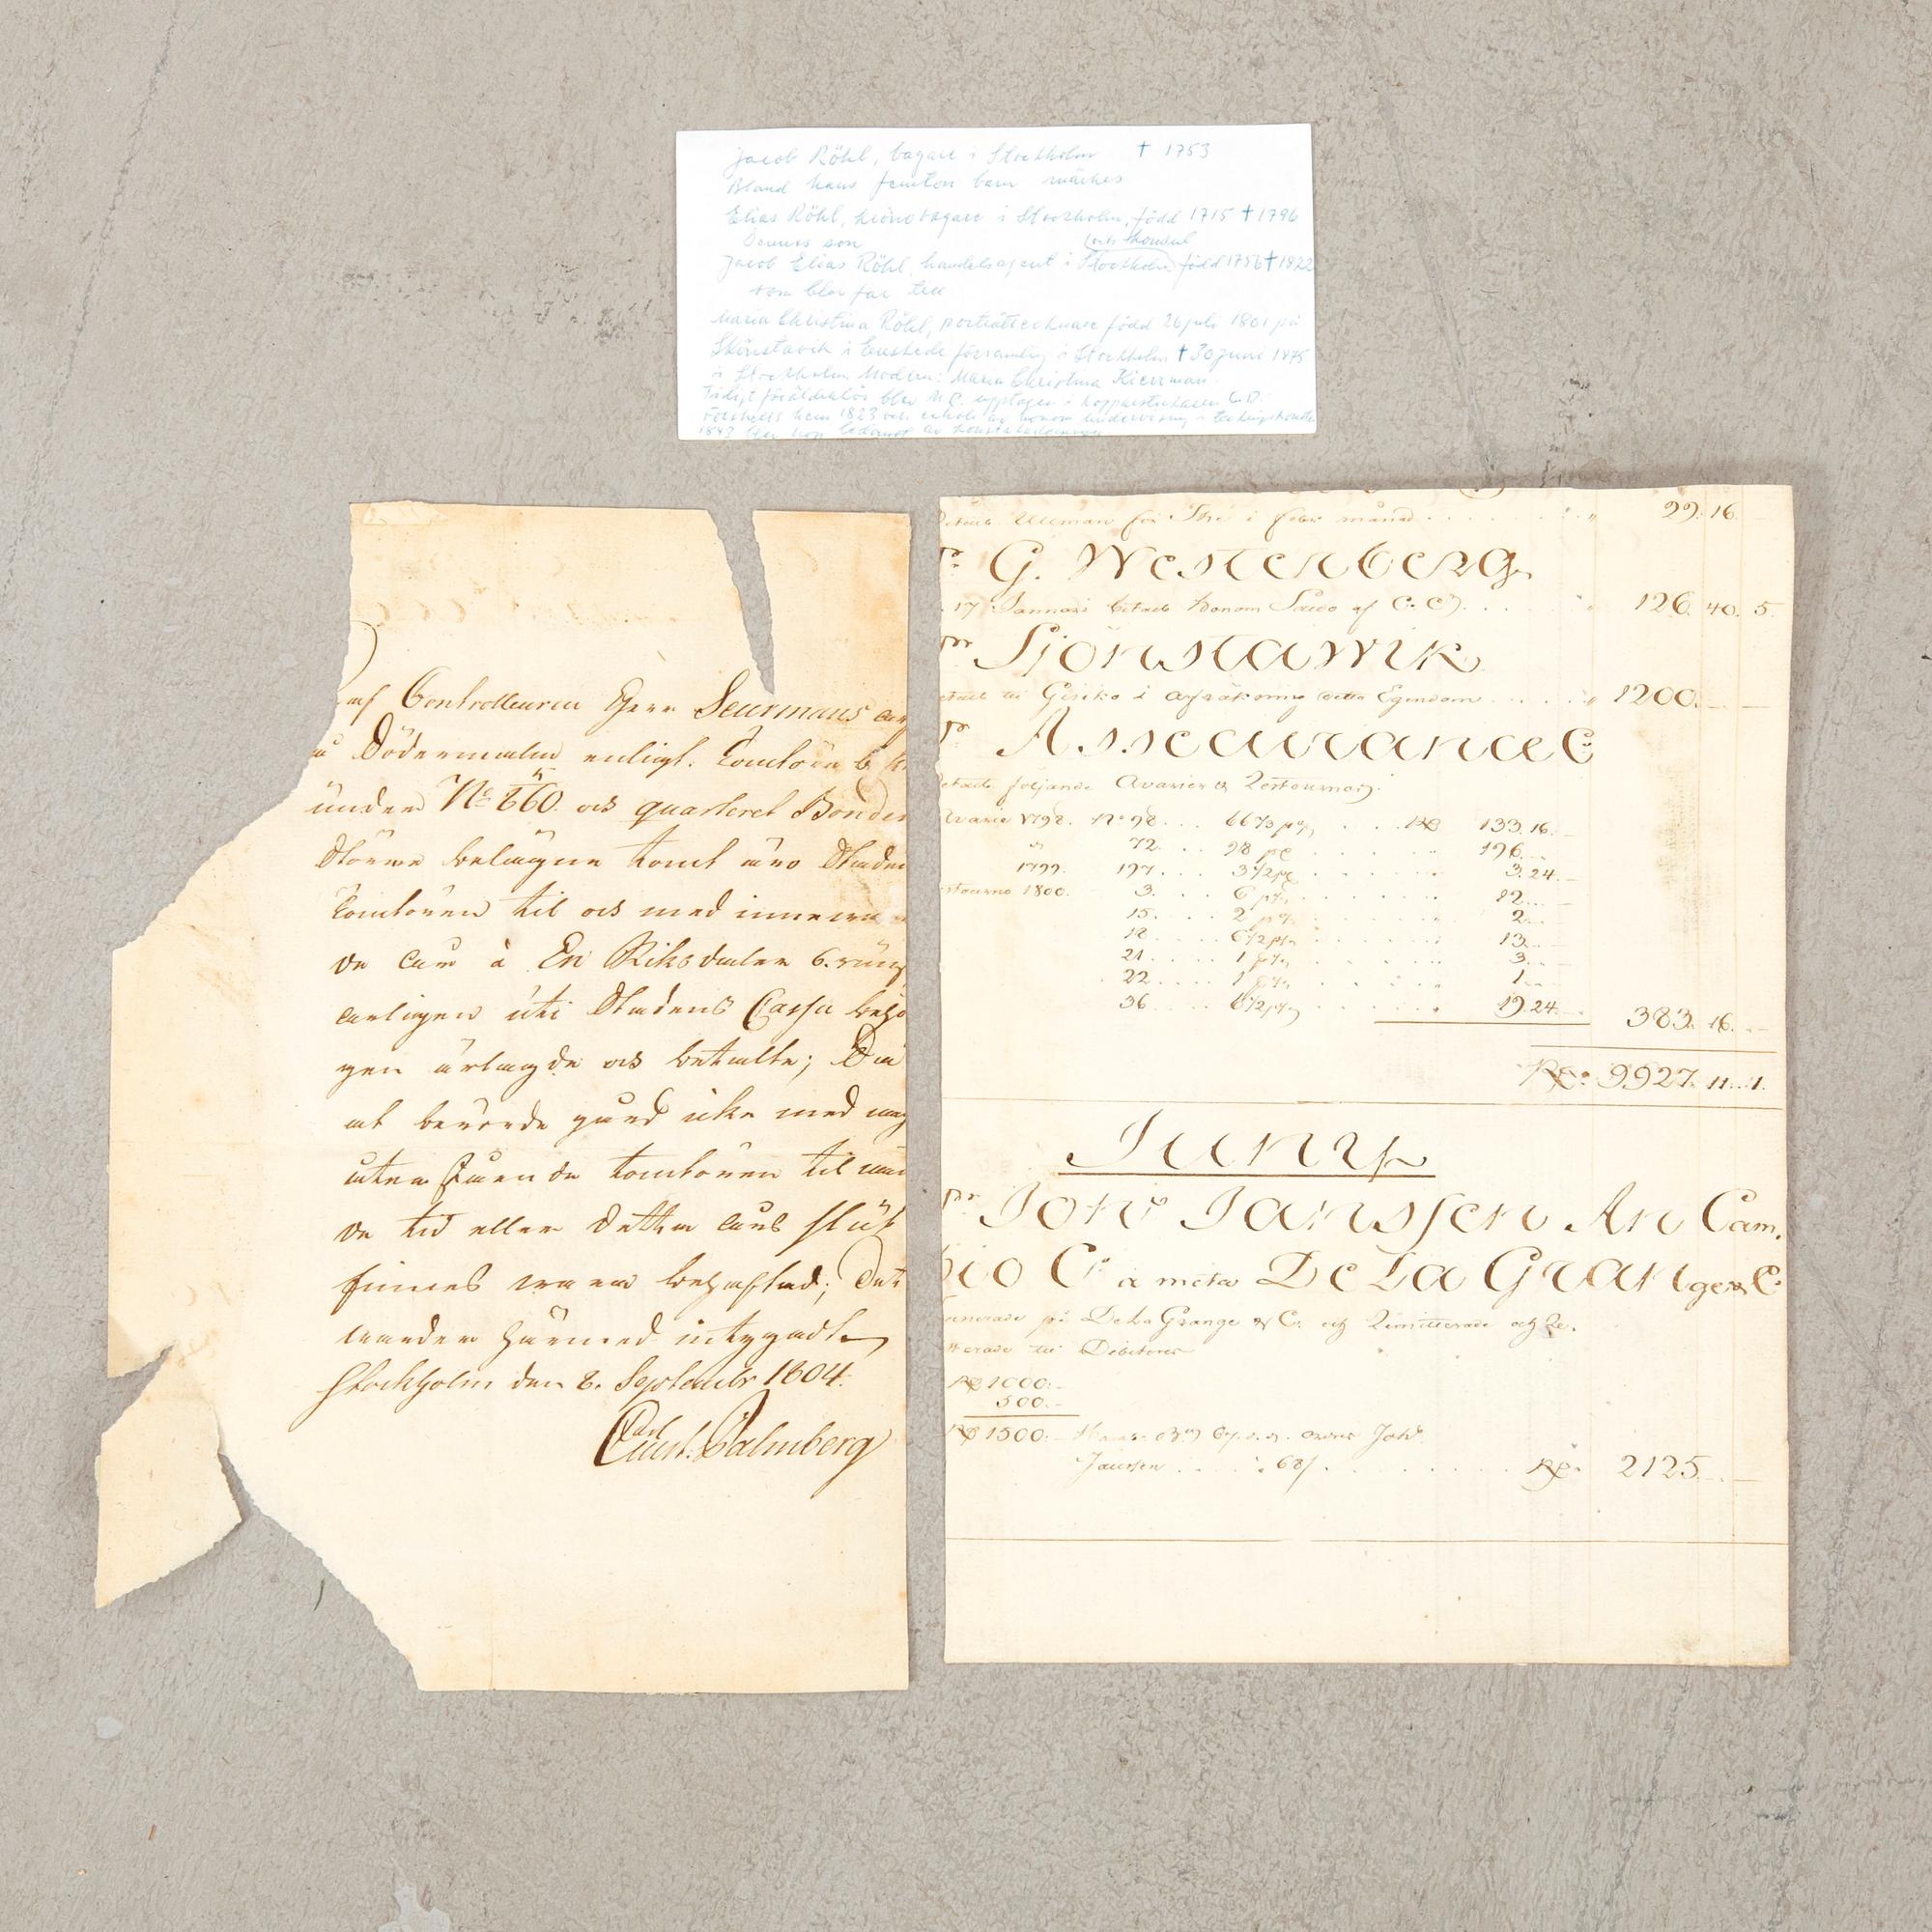 Jacob Röhl, bagare i Stockholm † 1753
Bland hans femton barn märkes
Elias Röhl, kronobagare i Stockholm, född 1715 † 1796
Dennes son
Jacob Elias Röhl, handelsagent i Stockholm född 1756 † 1822
som blev far till
Maria Christina Röhl, porträttecknare född 26 juli 1801 på
Skönstavik i Enskede församling i Stockholm † 30 juni 1875
i Stockholm. Modern: Maria Christina Kierrman.
Tidigt föräldralös blev M.C. upptagen i kopparstickaren C.D.
Forssells hem 1823 och erhöll av honom undervisning i
1843 blev hon ledamot av konstakademien
af Controlleuren Herr Seurmans
å Södermalm enligt. Tomtöres
under No 660. och quarteret Bonden
Större belägne tomt äro Staden
tomtören til och med innewa
de år à En Riksdaler 6. run
årligen uti Stadens Cassa beho
gen ärlagde och betalte; Då
at berörde gård icke med
utestående tomtören til
de tid eller detta års slut
finnes wara behäftad; Det
warder härmed intygadt
Stockholm den 8. Septembr 1804.
Carl Palmberg
Ullman för The i febr månad 29. 16.
G. Westerberg
17 Januari betalt honom Saldo af C. C). 126. 40. 5.
Sjönstawik
til Gisiko i afräkning detta Egendom 1200. —
Assecurance C:
följande Avarier & Restourno).
Avarie 1798. No 98. 66 2/3 pC 133. 16.
" 72. 98 pC 196.
1799. 197. 3 1/2 pC 3. 24.
stourno 1800. 3. 6 pC 12.
15. 2 pC 2.
18. 6 1/2 pC 13.
21. 1 pC 3.
22. 1 pC 1.
36. 6 1/2 pC 19. 24. 383. 16.
9927. 11. 1.
Juny
Joh Janssen An Cam.
bio Co a meta De La Grange & C:
på De La Grange & C: och Remitterade och Re.
terade til Debitorer
1000.
500.
1500.
Janssen 68/. 2125. —